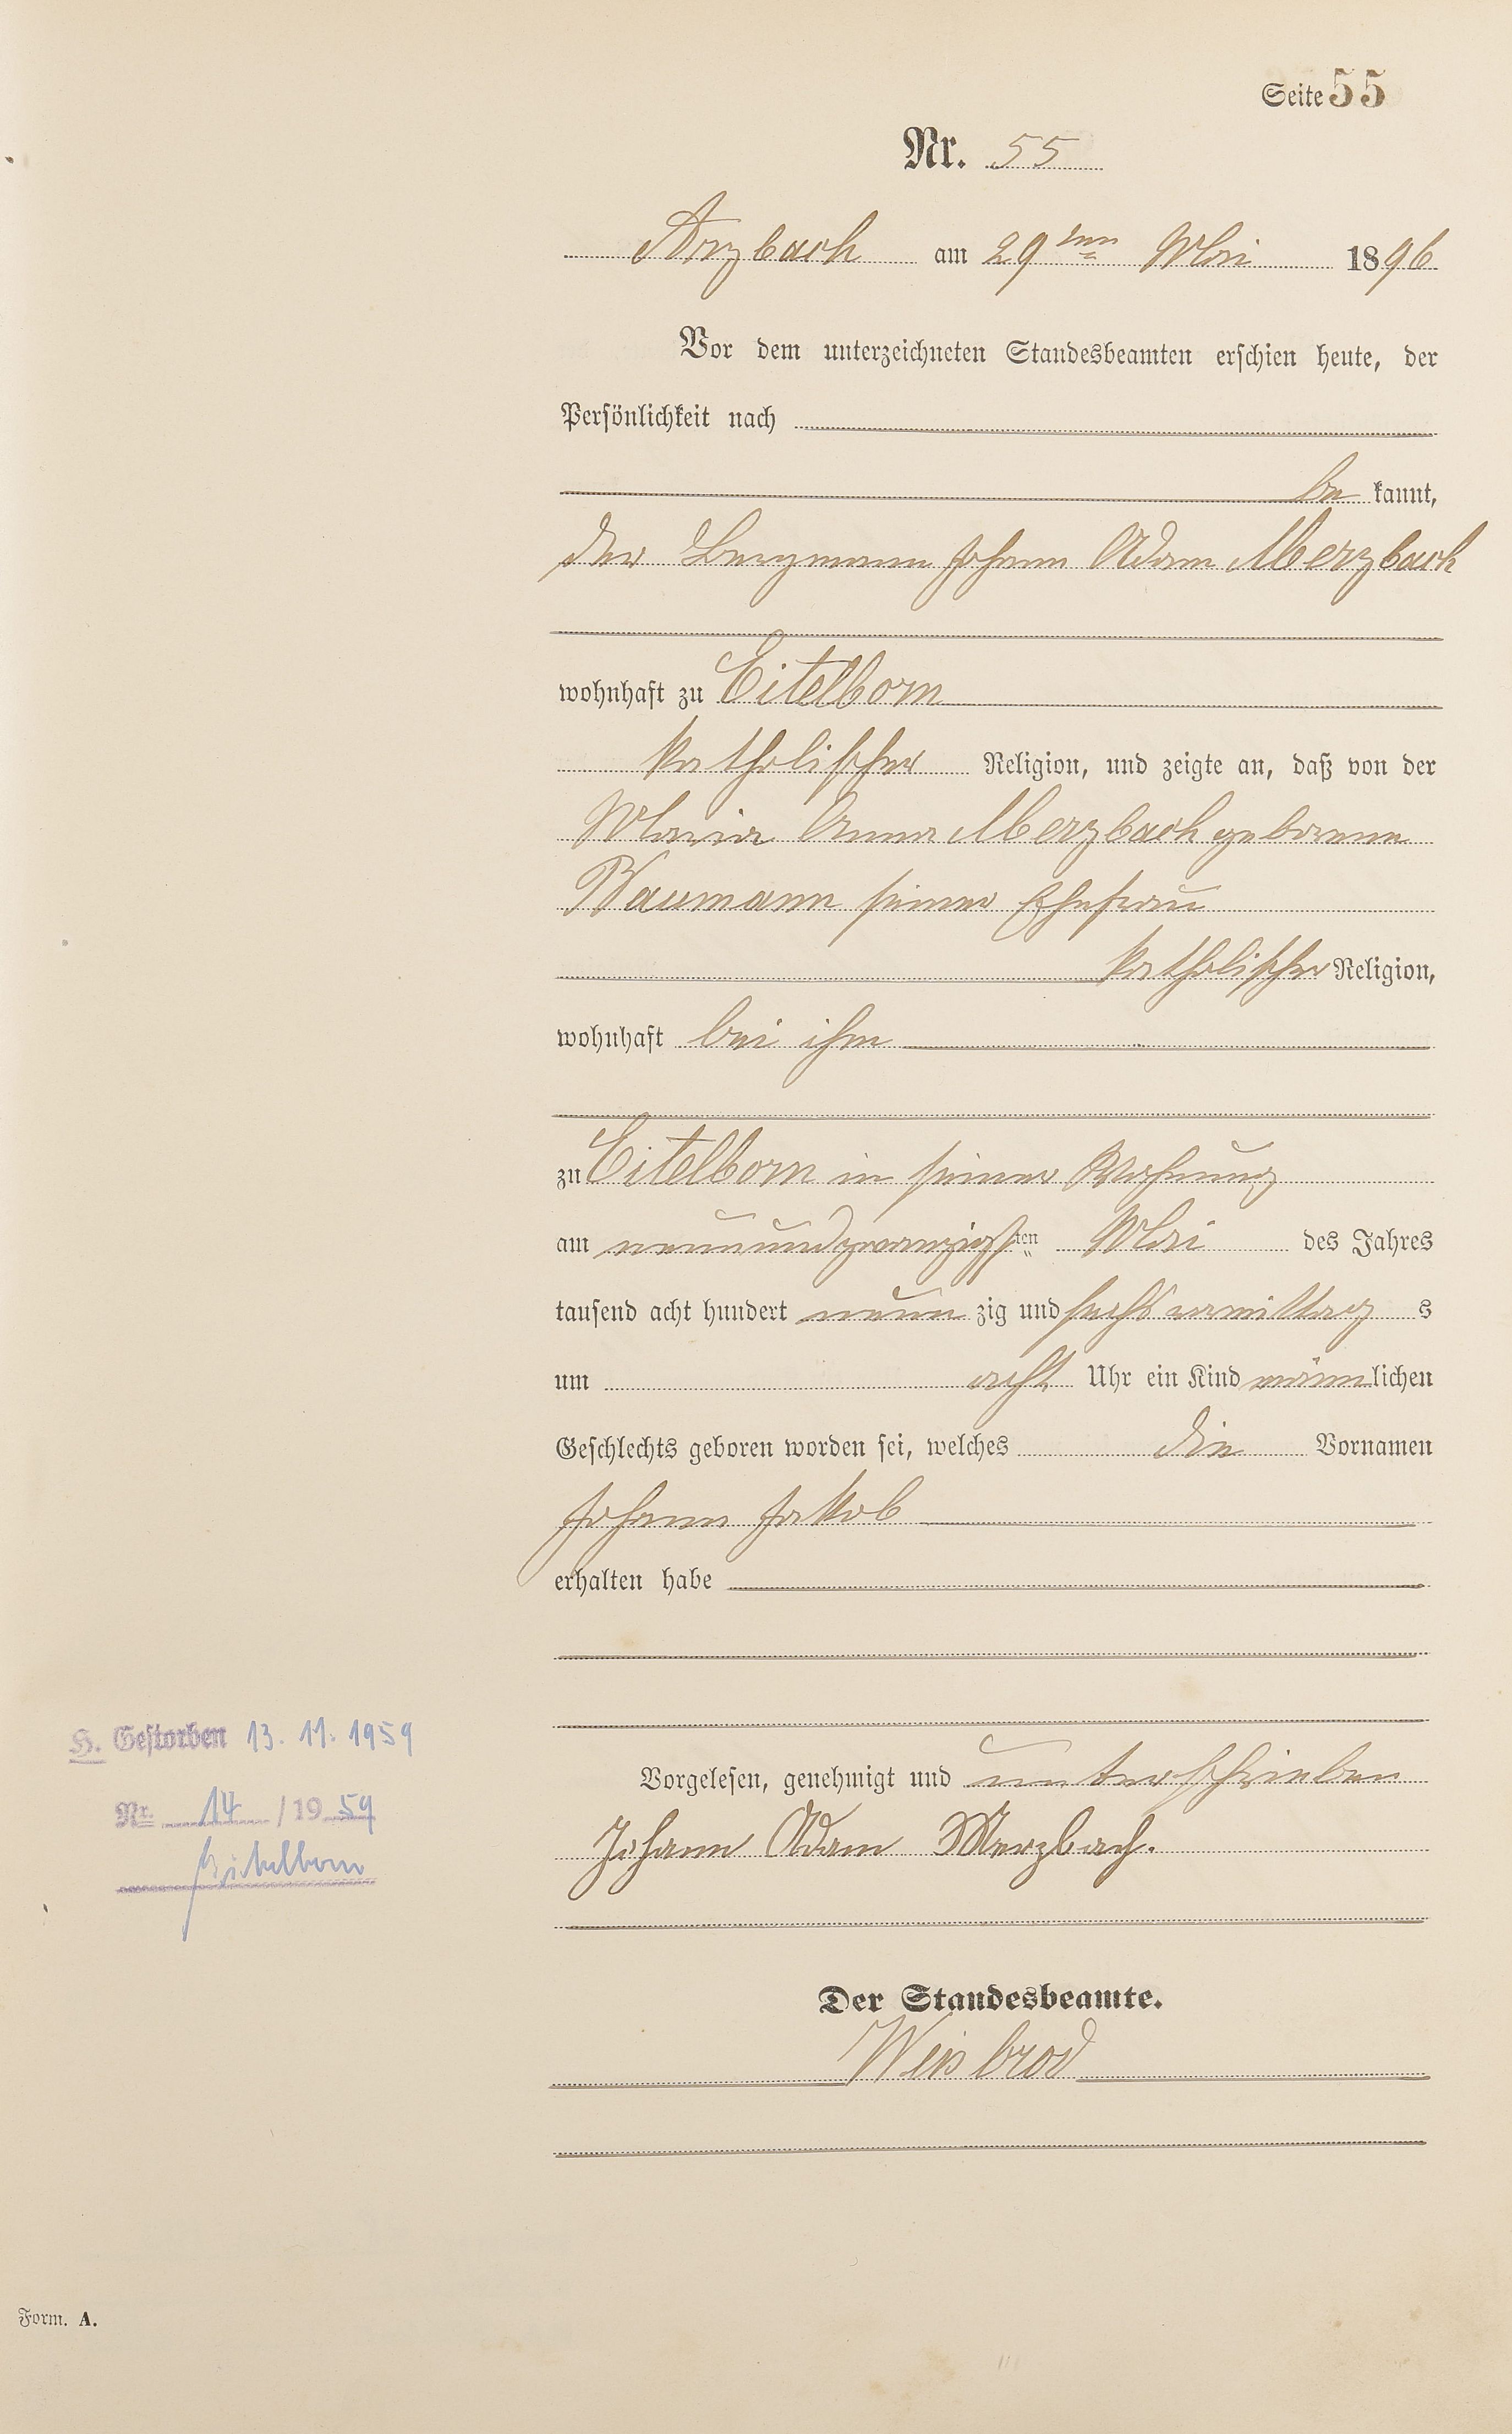 Seite 55
Nr. 55
Arzbach am 29ten Mai 1896
Vor dem unterzeichneten Standesbeamten erschien heute, der
Persönlichkeit nach
be kannt,
der Bergmann Johann Adam Merzbach
wohnhaft zu Eitelborn
katholischer Religion, und zeigte an, daß von der
Maria Anna Merzbach geborene
Baumann seiner Ehefrau
katholischer Religion,
wohnhaft bei ihm
zu Eitelborn in seiner Wohnung
am neunundzwanzigsten Mai des Jahres
tausend acht hundert neun zig und sechs vormittag s
um acht Uhr ein Kind männlichen
Geschlechts geboren worden sei, welches die Vornamen
Johann Jakob
erhalten habe
Vorgelesen, genehmigt und unterschrieben
Johann Adam Merzbach.
Der Standesbeamte.
Weisbrod
H. Gestorben 13. 11. 1959
Nr. 14 / 19 59
Eitelborn
Form. A.